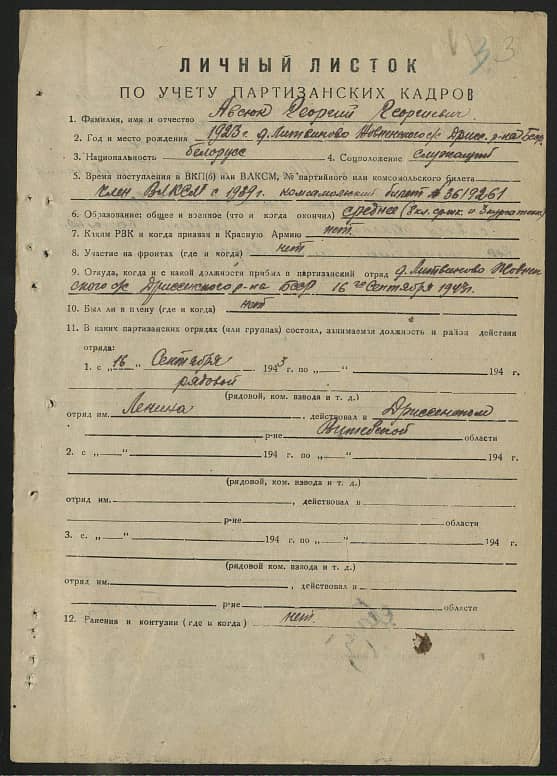 3 3
ЛИЧНЫЙ ЛИСТОК
ПО УЧЕТУ ПАРТИЗАНСКИХ КАДРОВ
1. Фамилия, имя и отчество Авсюк Георгий Георгиевич
2. Год и место рождения 1923 г д. Литвиново Дрисс. р-на БССР
3. Национальность белорусс 4. Соцположение служащий
5. Время поступления в ВКП(б) или ВЛКСМ, № партийного или комсомольского билета
член ВЛКСМ с 1939 г. комсомольский билет № 3619261
6. Образование: общее и военное (что и когда окончил) среднее (8 кл. и 3 курса)
7. Каким РВК и когда призван в Красную Армию нет.
8. Участие на фронтах (где и когда) нет.
9. Откуда, когда и с какой должности прибыл в партизанский отряд д. Литвиново
ского с/с Дриссенского р-на БССР 16 го сентября 1943 г.
10. Был ли в плену (где и когда) нет
11. В каких партизанских отрядах (или группах) состоял, занимаемая должность и район действия
отряда:
1. с „16“ Сентября 1943 г. по „—“ 194 г.
рядовой
(рядовой, ком. взвода и т. д.)
отряд им. Ленина, действовал в Дриссенском
р-не Витебской области
2. с „—“ 194 г. по „—“ 194 г.
(рядовой, ком. взвода и т. д.)
отряд им. , действовал в
р-не области
3. с „—“ 194 г. по „—“ 194 г.
(рядовой ком. взвода и т. д.)
отряд им. , действовал в
р-не области
12. Ранения и контузии (где и когда) нет.